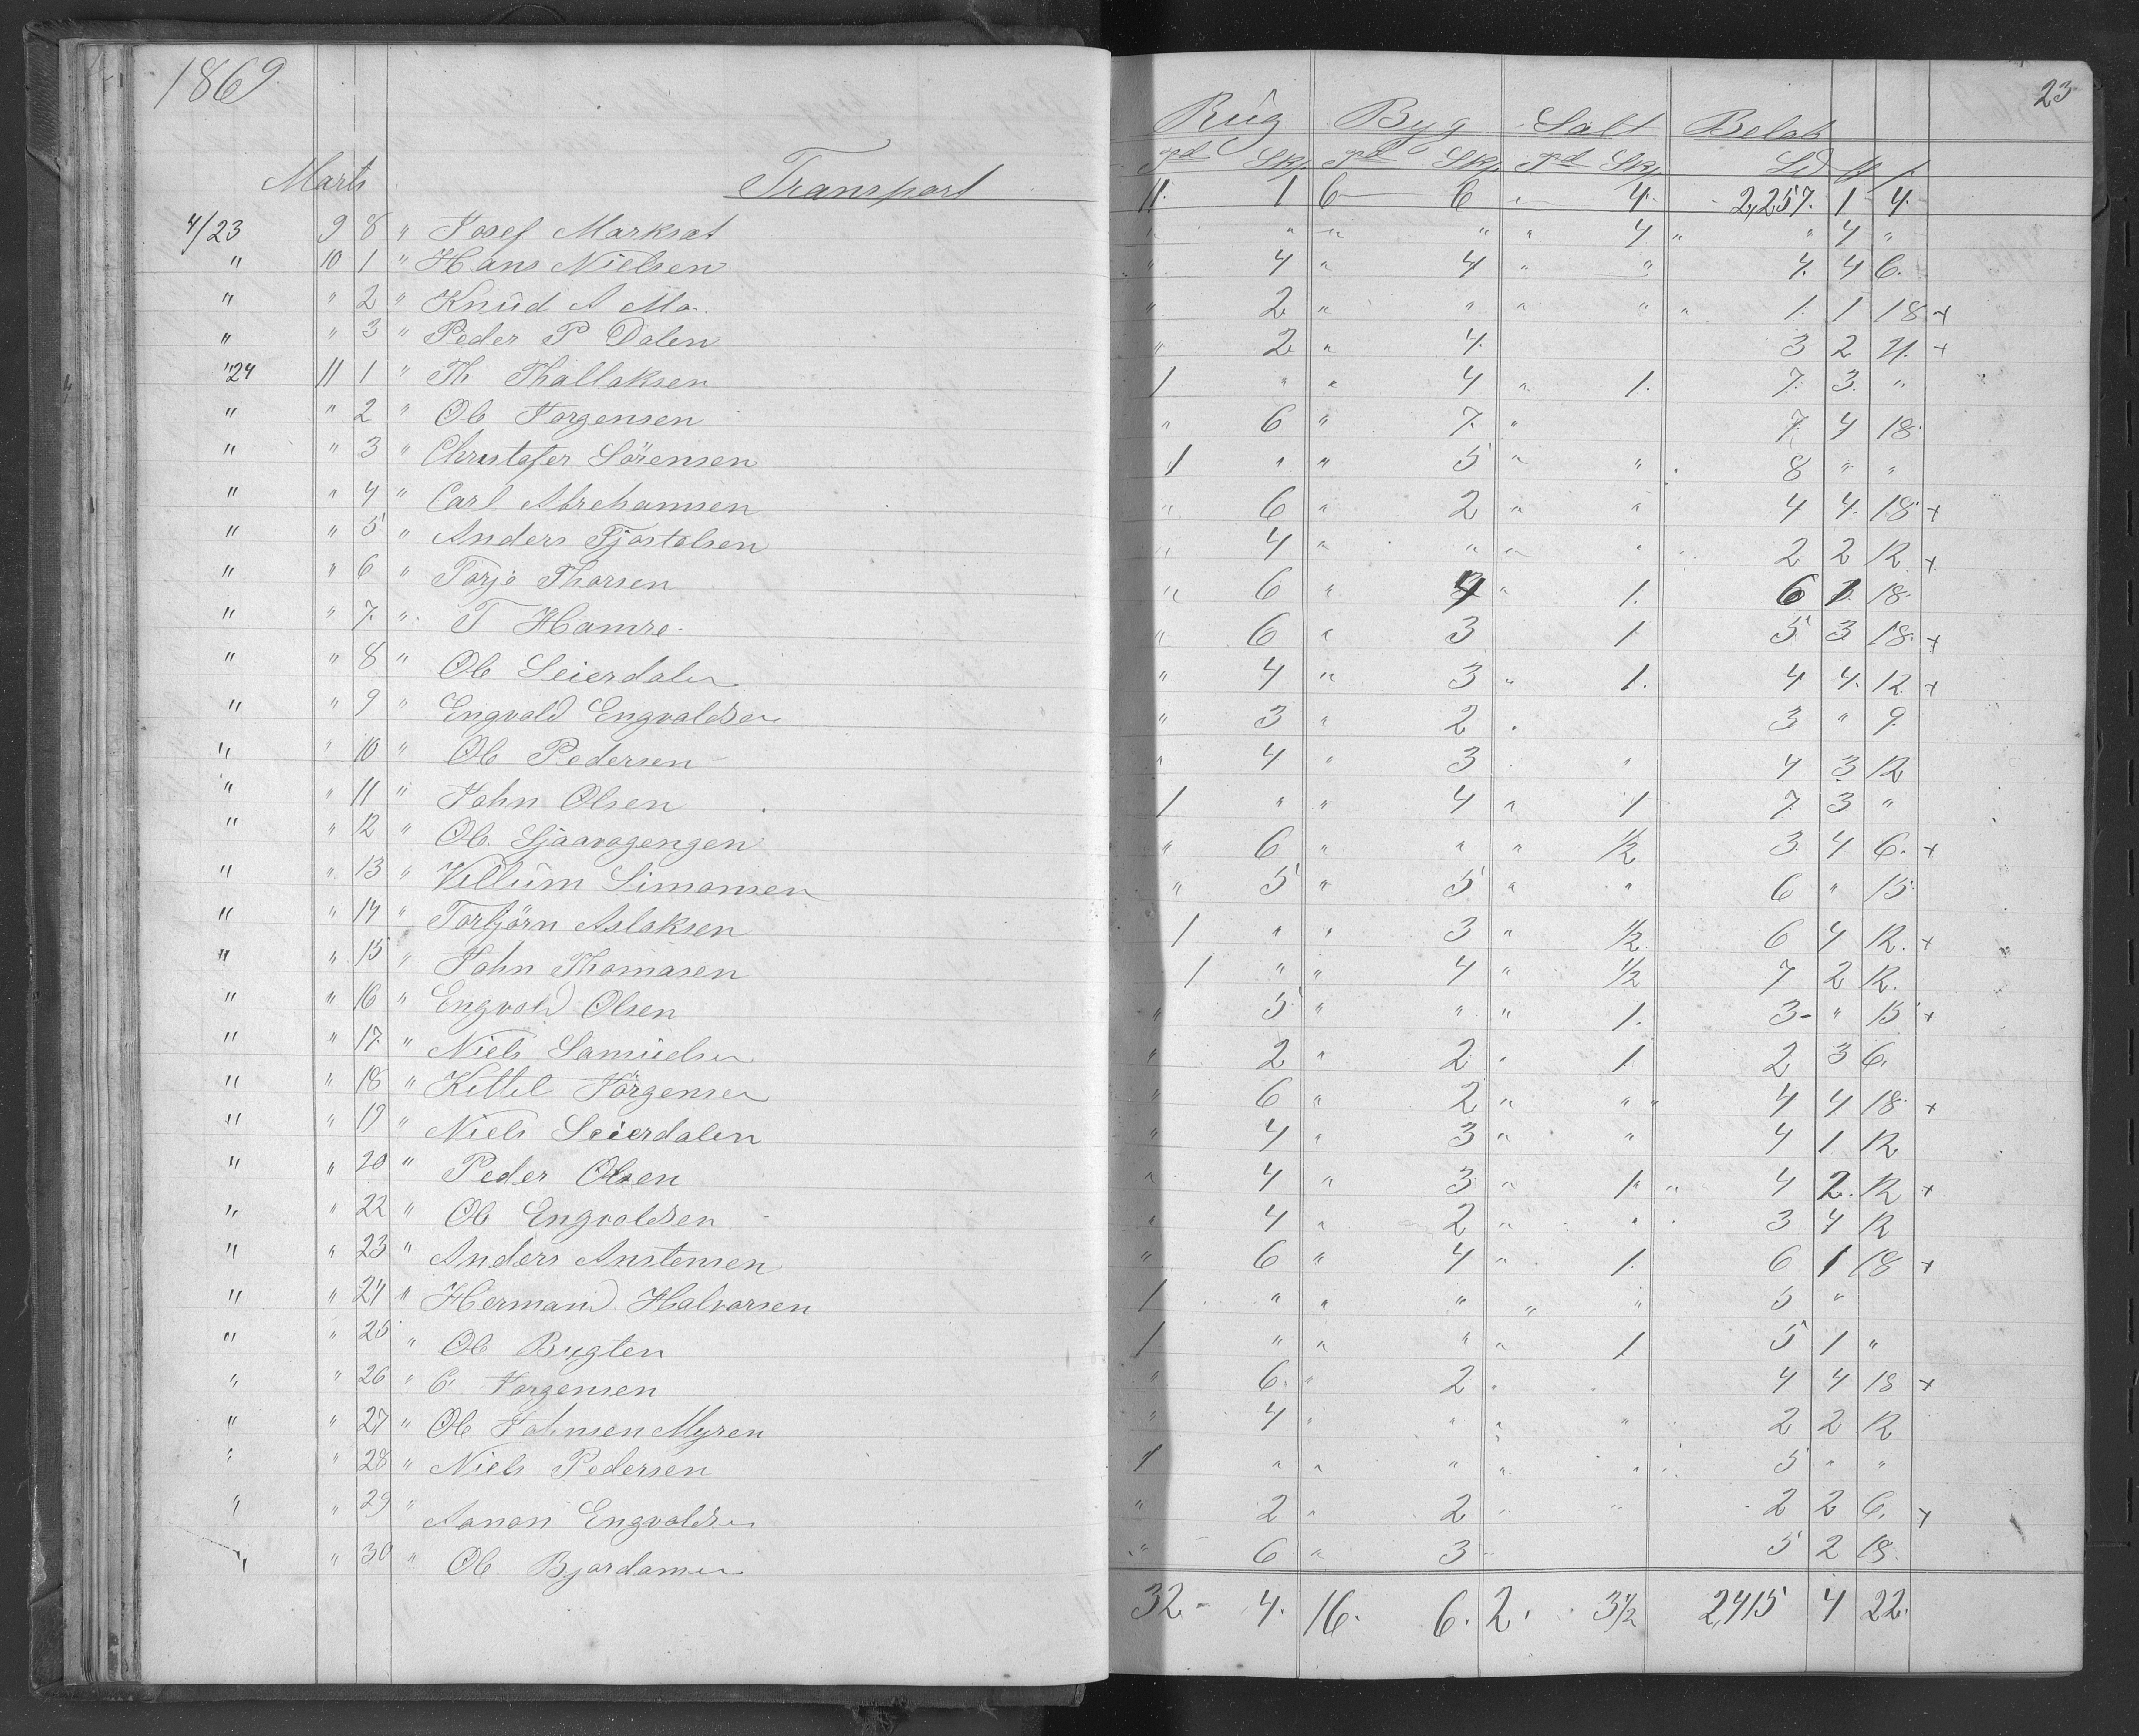 1869. 23
Rüg Byg Salt Beløb
Marts Transport 11. 1 6 6 " 4. 2,257. 1 4.
4/23 9 8 " Josef Marksæt " " " " " 4 " " 4 "
" 10 1 " Hans Nielsen " 4 " 4 " " 4. 4 6.
" " 2 " Knüd A Mo " 2 " " " " " 1. 1 18 +
" " 3 " Peder P Dalen " 2 " 4. 3 2 21. +
"24 11 1 " Th Thallaksen 1 " " 4 " 1. 7. 3. "
" " 2 " Ole Jorgensen " 6 " 7. " 7. 4 18.
" " 3 " Christofer Sörensen 1 " " 5 " " 8 " "
" " 4 " Carl Abrehamsen " 6 " 2 " " 4 4. 18 +
" " 5 " Anders Tjøstolsen " 4 " " " " 2 2 12 +
" " 6 " Torjo Thorsen " 6 " 4 " 1. 6 1 18.
" " 7. " T Hamre " 6 " 3 1. 5 3 18. +
" " 8 " Ole Seierdalen " 4 " 3 " 1. 4 4. 12 +
" " 9 " Engvald Engvaldsen " 3 " 2 . 3 " 9.
" " 10 " Ole Pedersen " 4 " 3 " 4 3 12
" " 11 " John Olsen 1 " " 4 " 1 7. 3 "
" " 12 " Ole Sjaavagengen " 6 " " " 1/2 3. 4 6. +
" " 13 " Villüm Simonsen " 5 " 5 " " 6 " 15.
" " 14 " Torbjörn Aslaksen 1 " " 3 " 1/2 6 4 12. +
" " 15 " John Thomasen 1 " " 4 " 1/2 7 2 12.
" " 16 " Engvald Olsen " 5 " " " 1. 3- " 15 +
" " 17. " Niels Samüelsen " 2 " 2 " 1 2 3 6.
" " 18 " Kittel Jörgensen " 6 " 2 " " " 4 4 18 +
" " 19 " Niels Seierdalen " 4 " 3 " " 4 1 12
" " 20 " Peder Olsen " 4 " 3 " 1 " 4 2. 12 +
" " 22 " Ole Engvaldsen " 4 " 2 " " 3 4 12
" " 23 " Anders Anstensen " 6 " 4 " 1. 6 1 18 +
" " 24 " Hermand Halvorsen 1 " " " " " 5 "
" " 25 " Ole Bugten 1 " " " " 1 5 1 "
" " 26 " C Jorgensen " 6. " 2 . 4 4 18 +
" " 27 " Ole Johnsen Myren " 4 " " " " 2 2 12
" " 28 " Niels Pedersen 1 " " " " " 5 " "
" " 29 " Aanon Engvaldsen " 2 " 2 " " 2 2 6. +
" " 30 " Ole 6 " 3 5 2 18.
32 - 4. 16. 6. 2. 3 1/2 2,415 4 22.